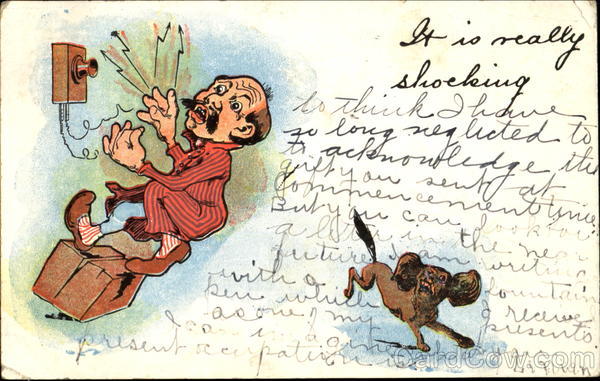 It is really
shocking
to think I have
so long neglected to
acknowledge the
gift you sent at
Commencement time
But you can look for
a letter in the near
future. I am writing
with a fountain
pen which I receive
as one of my presents
I
present occupation
CardCow.com